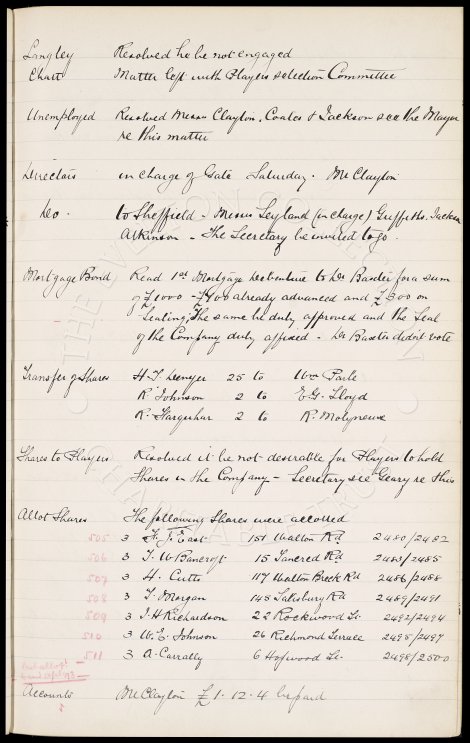 Langley Resolved he be not engaged
Chart Matter left with Players selection Committee
Unemployed Resolved Messrs Clayton, Coates & Jackson see the Mayor
re this matter
Directors in charge of Gate Saturday - Mr Clayton
Do. to Sheffield - Messrs Leyland (in charge) Griffiths. Jackson
Atkinson - The Secretary be invited to go.
Mortgage Bond Read 1st Mortgage Debenture to Dr Baxter for a sum
of £1000 - £ already advanced and £ on
Sealing, the same be duly approved and the Seal
of the Company duly affixed - Dr Baxter didn't vote
Transfer of Shares H. J. 25 to Wm
R. Johnson 2 to E.G. Lloyd
R. 2 to R. Molyneux
Shares to Players Resolved it be not desirable for Players to hold
Shares in the Company - Secretary see Geary re this
Allot Shares The following Shares were allotted
505 3 F. J. East 151 Walton Rd 2480/2482
506 3 T. W Bancroft 15 Tancred Rd 2483/2485
507 3 H. Cutts 117 Walton Breck Rd 2486/2488
508 3 T. Morgan 145 Salisbury Rd 2489/2491
509 3 J. H Richardson 22 Rockwood St. 2492/2494
510 3 W. E. Johnson 26 Richmond Terrace 2495/2497
511 3 A. 6 Hopwood St. 2498/2500
Accounts Mr Clayton £1 - 12 - 4 be paid